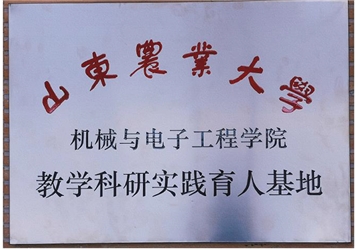 山東農業大學
机械与电子工程学院
教学科研实践育人基地